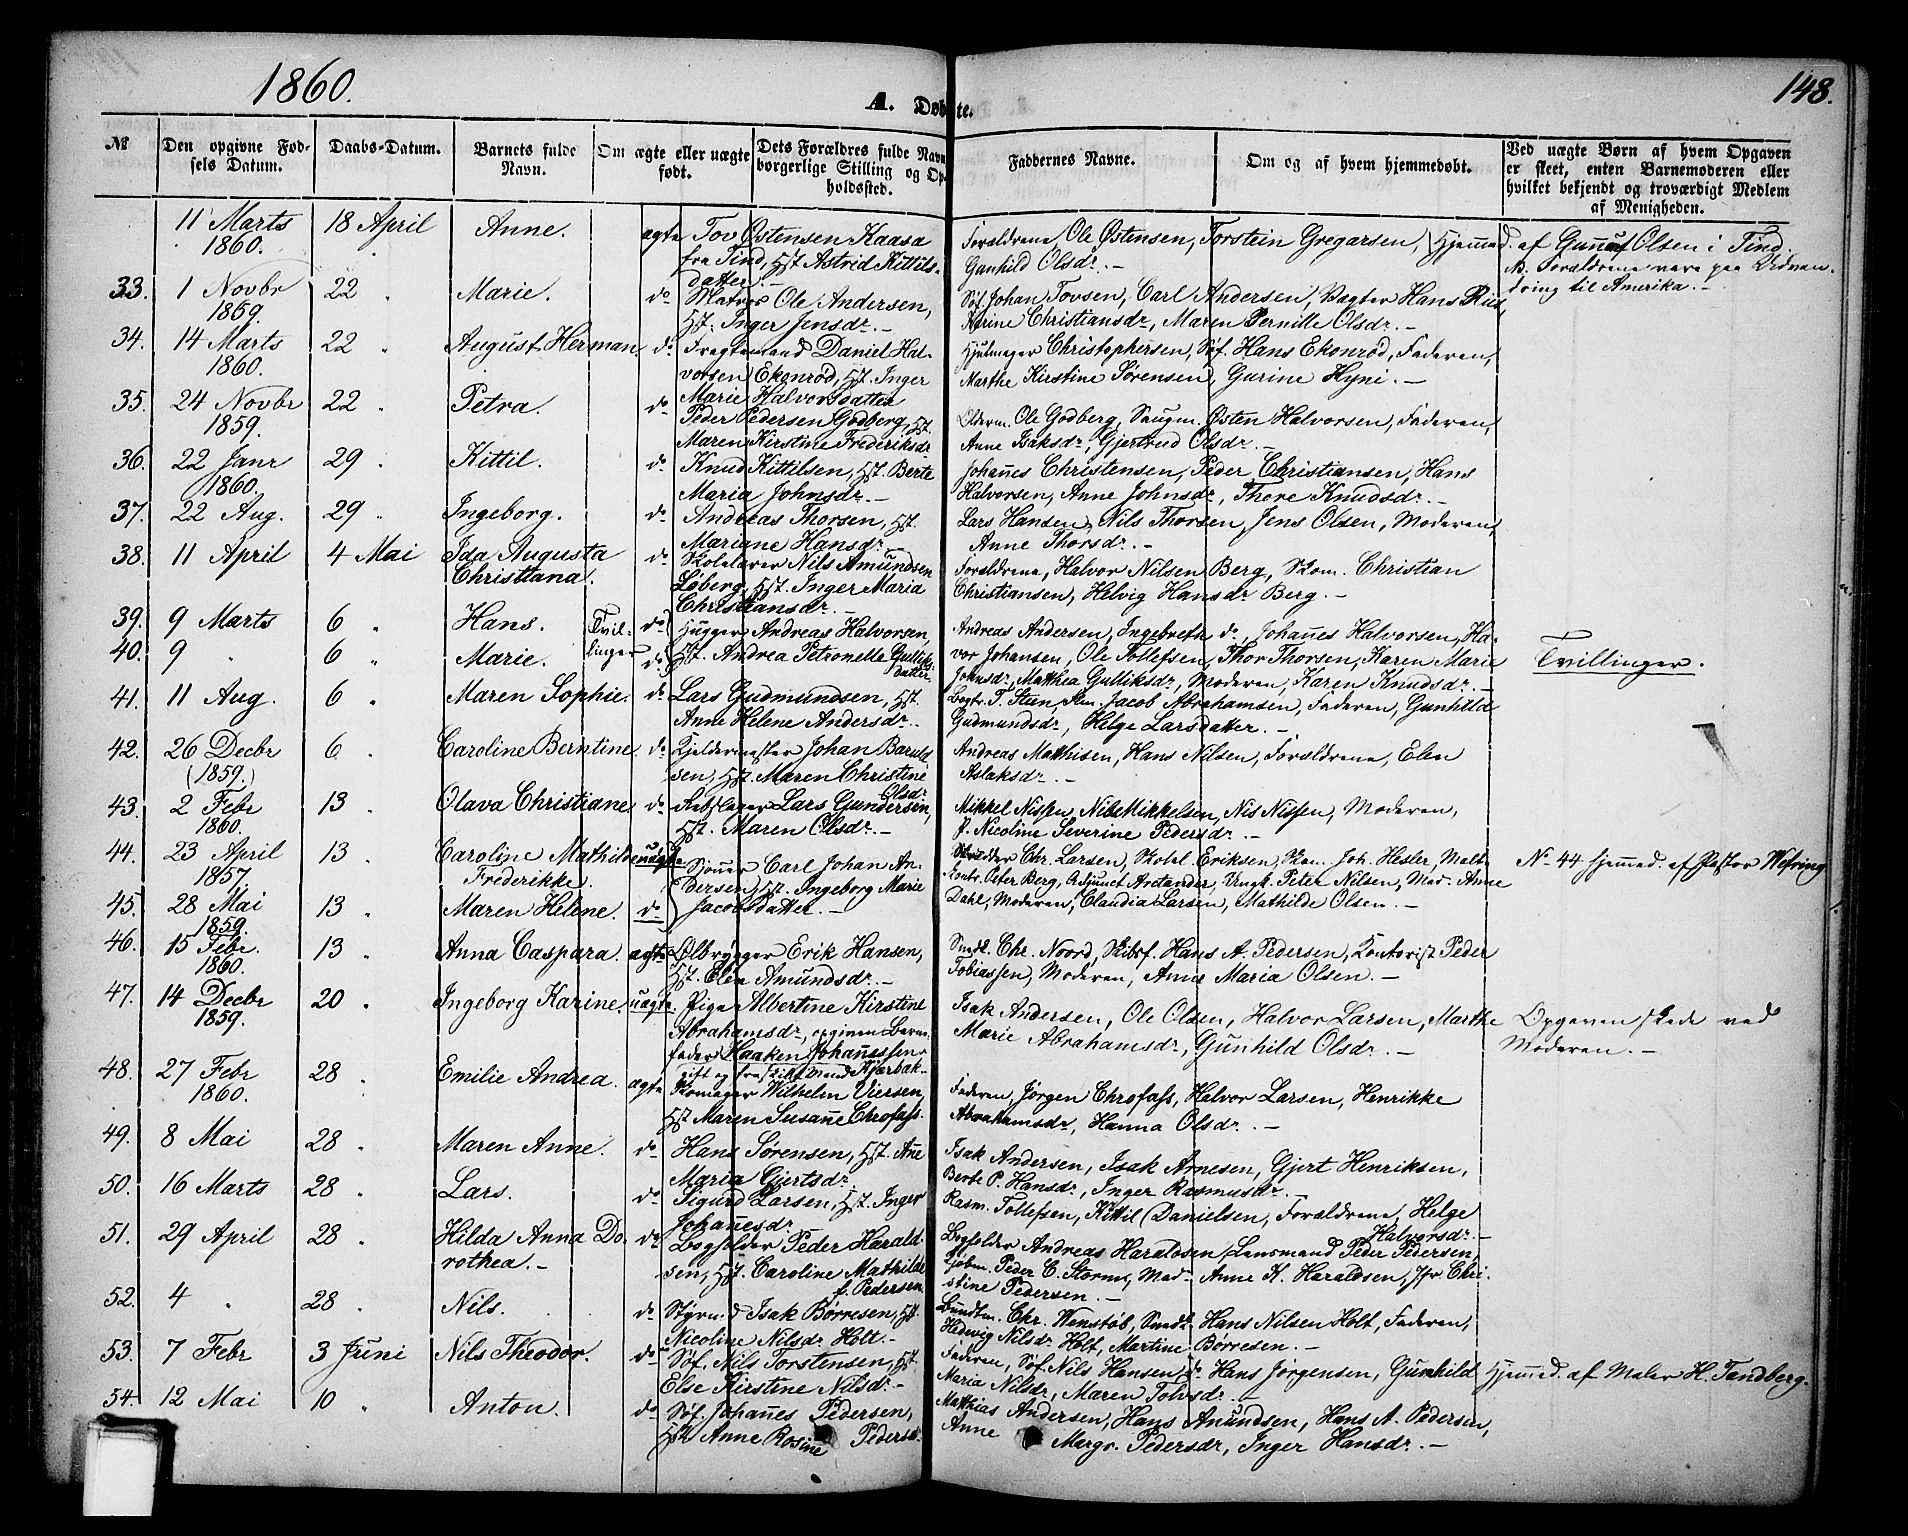 1860.
148.
A. Døbte.
№
Den opgivne Fødsels Datum.
Daabs-Datum.
Barnets fulde Navn.
Om ægte eller uægte født.
Dets Forældres fulde Navn borgerlige Stilling og Opholdssted.
Faddernes Navne.
Om og af hvem hjemmedøbt.
Ved uægte Børn af hvem Opgaven er skeet, enten Barnemoderen eller hvilket bekjendt og troværdigt Medlem af Menigheden.
11 Marts 1860. 18 April Anne. ægte Tov Østensen Kaasa fra Tind, Hst Astrid Kittilsdatter.—
Forældrene, Ole Østensen, Torstein Gregarsen, Gunhild Olsdr.—
Hjemmed. af Gunnuf Olsen i Tind.
Forældrene vare paa Udvandring til Amerika.—
33. 1 Novbr 1859. 22 " Marie. do Matros Ole Andersen, Hst. Inger Jensdr.—
Søf. Johan Tovsen, Carl Andersen, Vagter Hans Rud, Karine Christiansdr, Maren Pernille Olsdr.—
34. 14 Marts 1860. 22 " August Herman do Fragtemand Daniel Halvorsen Ekonrød, Hst. Inger Marie Halvorsdatter
Hjulmager Christophersen, Søf. Hans Ekonrød, Faderen, Marthe Kirstine Sørensen, Gurine Hyni.—
35. 24 Novbr 1859. 22 " Petra. do Peder Pedersen Godberg, Hst. Maren Kirstine Frederiksdr
Olderm. Ole Godberg, Saugm. Østen Halvorsen, Faderen, Anne Isaksdr, Gjertrud Olsdr.—
36. 22 Janr 1860. 29 " Kittil. do Knud Kittilsen, Hst. Berte Maria Johnsdr.—
Johannes Christensen, Peder Christiansen, Hans Halvorsen, Anne Johnsdr, Thore Knudsdr.—
37. 22 Aug. 29 " Ingeborg. do Andreas Thorsen, Hst. Mariane Hansdr.—
Lars Hansen, Nils Thorsen, Jens Olsen, Moderen, Anne Thorsdr.—
38. 11 April 4 Mai Ida Augusta Christiana. do Skolelærer Nils Amundsen Løberg, Hst. Inger Maria Christiansdr.—
Forældrene, Halvor Nilsen Berg, Skom. Christian Christiansen, Helvig Hansdr Berg.—
39. 9 Marts 6 " Hans. Tvillinger do Hugger Andreas Halvorsen,
40. 9 " 6 " Marie. do Hst. Andrea Petronelle Gulliksdatter
Andreas Andersen, Ingebreth do, Johannes Halvorsen, Halvor Johansen, Ole Tollefsen, Thor Thorsen, Karen Marie Johnsdr, Mathea Gulliksdr, Moderen, Karen Knudsdr.—
Tvillinger.
41. 11 Aug. 6 " Maren Sophie. do Lars Gudmundsen, Hst. Anne Helene Andersdr.
Bogtr. T. Steen, Jacob Abrahamsen, Faderen, Gunhild Gudmundsdr, Helge Larsdatter.—
42. 26 Decbr (1859.) 6 " Caroline Berntine. do Kjeldermester Johan Baruldsen, Hst. Maren Christine Olsdr
Andreas Mathisen, Hans Nilsen, Forældrene, Elen Aslaksdr.—
43. 2 Febr 1860. 13 " Olava Christiane. do Rebslager Lars Gundersen, Hst. Maren Olsdr.—
Mikkel Nissen, Nils Mikkelsen, Nis Nissen, Moderen, J. Nicoline Severine Pedersdr.—
44. 23 April 1857. 13 " Caroline Mathilde Frederikke. uægte Sjouer Carl Johan Andersen, Hst. Ingeborg Marie Jacobsdatter.—
45. 28 Mai 1859. 13 " Maren Helene. do
Skrædder Chr. Larsen, Skolel. Eriksen, Skom. Joh. Hesler, Maltkontr. Peter Berg, Adjunct Arctander, Ungk. Peter Nilsen, Mad. Anne Dahl, Moderen, Claudia Larsen, Mathilde Olsen.—
No 44 hjemmed. af Pastor Wefring
46. 15 Febr. 1860. 13 " Anna Caspara. ægte Ølbrygger Erik Hansen, Hst. Elen Amundsdr.—
Snedk. Chr. Noord, Skibsf. Hans A. Pedersen, Kontorist Peder Tobiassen, Moderen, Anne Maria Olsen.—
47. 14 Decbr 1859. 20 " Ingeborg Karine. uægte. Pige Albertine Kirstine Abrahamsdr, opgiven Barnefader Haaken Johannssen, gift og fraskilt Mand Kjærbak
Isak Andersen, Ole Olsen, Halvor Larsen, Marthe Marie Abrahamsdr, Gunhild Olsdr.—
Opgaven skede ved Moderen.—
48. 27 Febr 1860. 28 " Emilie Andrea. ægte Skomager Wilhelm Viersen, Hst Maren Susanne Chrofass.
Faderen, Jørgen Chrofass, Halvor Larsen, Henrikke Abrahamsdr, Hanna Olsdr.—
49. 8 Mai 28 " Maren Anne. do Hans Sørensen, Hst. Anne Maria Gjertsdr
Isak Andersen, Isak Arnesen, Gjert Henriksen, Berte P. Hansdr, Inger Rasmusdr.—
50. 16 Marts 28 " Lars. do Sigurd Larsen, Hst. Inger Johannesdr
Rasm. Tollefsen, Kittil Danielsen, Forældrene, Helge Halvorsdr.—
51. 29 April 28 " Hilda Anna Dorothea.— do Bogholder Peder Haraldsen, Hst. Caroline Mathilde f. Pedersen
Bogholder Andreas Haraldsen, Lensmand Peder Pedersen, Gjøbm. Peder C. Storm, Mad. Anne K. Haraldsen, Jfr Christine Pedersen.—
52. 4 " 28 " Nils. do Styrmd Isak Børresen, Hst. Nicoline Nilsdr Holt.—
Bundtm. Chr. Wenstøb, Snedk. Hans Nilsen Holt, Faderen, Hedevig Nilsdr Holt, Martine Børresen.—
53. 7 Febr 3 Juni Nils Theodor. do Søf. Nils Torstensen, Hst. Else Kirstine Nilsdr.—
Faderen, Søf. Nils Hansen, do. Hans Jørgensen, Gunhild Maria Nilsdr, Maren Tolvsdr.—
Hjemmed. af Maler H. Tandberg.
54. 12 Mai 10 " Anton. do Søf. Johannes Pedersen, Hst. Anne Rosine Pedersd.
Matthias Andersen, Hans Amundsen, Hans A. Pedersen, Anne Margr. Pedersdr, Inger Hansdr.—